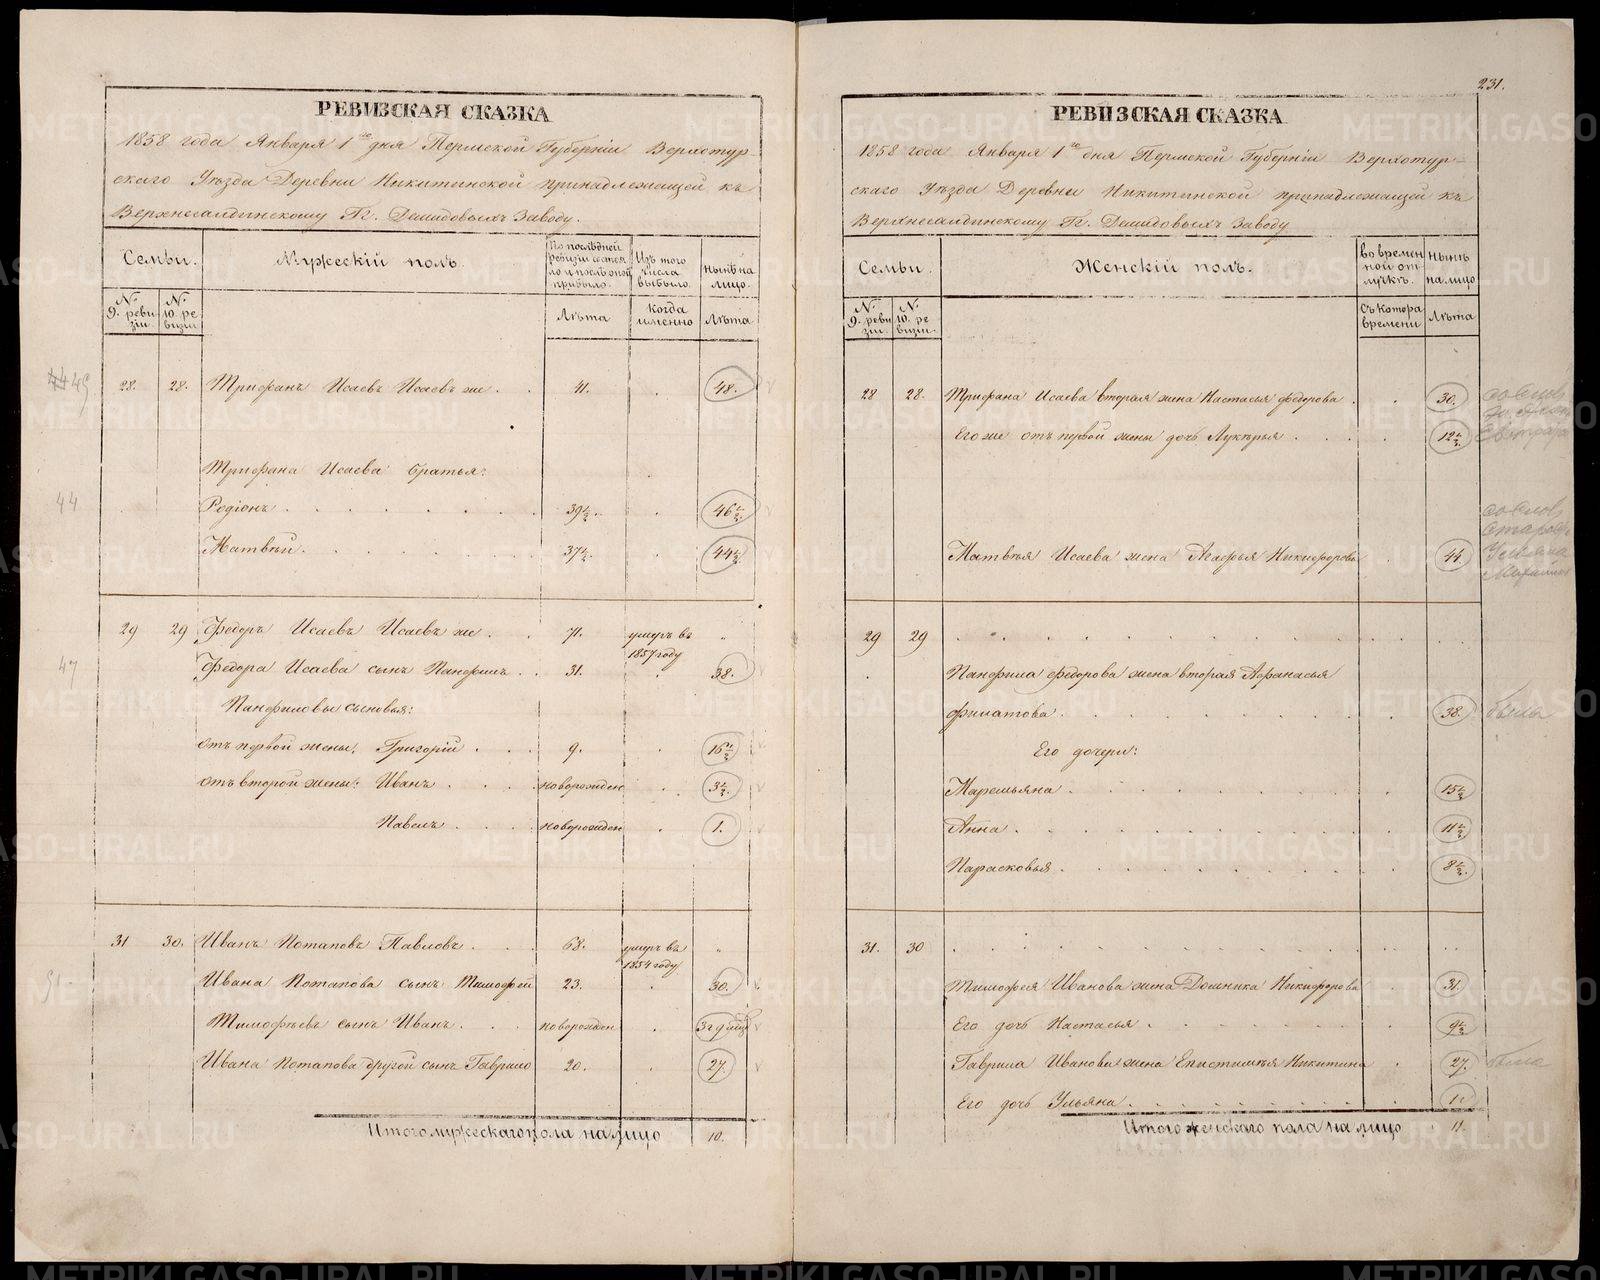 РЕВИЗСКАЯ СКАЗКА
1858 года Января 1го дня Пермской Губерніи Верхотур-
скаго Уѣзда Деревни Никитинской принадлежащей къ
Верхнесалдинскому Гг. Демидовыхъ Заводу.
Семьи.
Мужескій полъ.
По послѣдней ревизіи состояло и послѣ оной прибыло.
Изъ того числа выбыло.
нынѣ на лицо.
№ 9. ревизіи.
№ 10. ревизіи
Лѣта
Когда именно
Лѣта
45 28. 28. Трифанъ Исаевъ Исаевъ же. 41. 48.
Трифана Исаева братья:
44 Родіонъ 39½. 46½.
Матвѣй 37½. 44½.
29 29 Федоръ Исаевъ Исаевъ же. 71. умеръ въ
1857 году
47 Федора Исаева сынъ Панфилъ 31. 38.
Панфиловы сыновья:
отъ первой жены: Григорій 9. 16½
отъ второй жены: Иванъ новорожден 3½.
Павелъ новорожден 1.
31 30. Иванъ Потаповъ Павловъ 68. умеръ въ
1854 году
51 Ивана Потапова сынъ Тимофей 23. 30.
Тимофѣевъ сынъ Иванъ новорожден
Ивана Потапова другой сынъ Гаврило 20. 27.
Итого мужескаго пола на лицо 10.
231.
РЕВИЗСКАЯ СКАЗКА
1858 года Января 1го дня Пермской Губерніи Верхотур-
скаго Уѣзда Деревни Никитинской принадлежащей къ
Верхнесалдинскому Гг. Демидовыхъ Заводу
Семьи.
Женскій полъ.
во временной отлучкѣ.
нынѣ на лицо
№ 9. ревизіи.
№ 10. ревизіи.
Съ котора времени
Лѣта
28 28. Трифана Исаева вторая жена Настасья Федорова 30.
Его же от первой жены дочь Лукерья 12½.
Матвѣя Исаева жена Агафья Никифорова 44.
29 29
Панфила Федорова жена вторая Афанасья
Филатова 38.
Его дочери:
Маремьяна 15½
Анна 11½
Парасковья 8½.
31. 30
Тимофея Иванова жена Домника Никифорова 31.
Его дочь Настасья 9½
Гаврила Иванова жена Епистимѣя Никитина 27.
Его дочь Ульяна 1.
Итого женскаго пола на лицо 11.
METRIKI.GASO-URAL.RU